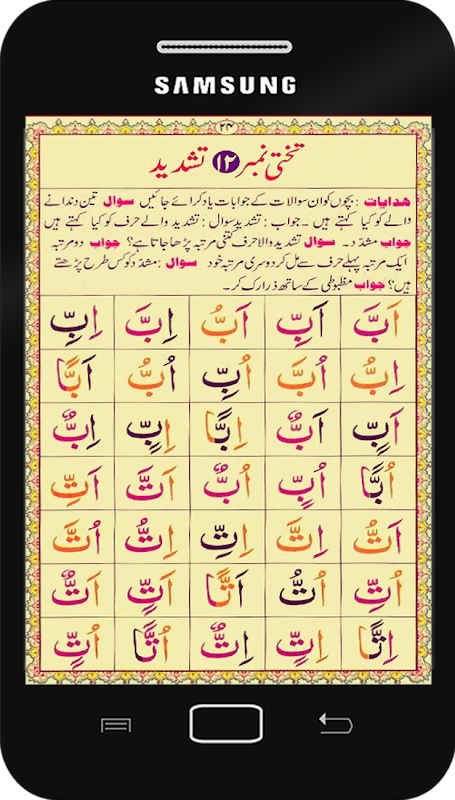 SAMSUNG
۲۴
تختی نمبر ۱۲ تشدید
ھدایات : بچوں کو ان سوالات کے جوابات یاد کرائے جائیں سوال تین دندانے
والے کو کیا کہتے ہیں ۔ جواب : تشدید سوال : تشدید والے حرف کو کیا کہتے ہیں
جواب مشدّد۔ سوال تشدید والا حرف کتنی مرتبہ پڑھا جاتا ہے؟ جواب دو مرتبہ
ایک مرتبہ پہلے حرف سے مل کر دوسری مرتبہ خود سوال : مشدّد کو کس طرح پڑھتے
ہیں؟ جواب مظبوطی کے ساتھ ذرا رک کر۔
اَبَّ اَبِّ اَبُّ اِبَّ اِبِّ
اِبُّ اُبَّ اُبِّ اُبُّ اَبًّا
اَبٍّ اَبٌّ اِبًّا اِبٍّ اِبٌّ
اُبًّا اُبٍّ اُبٌّ اَتَّ اَتِّ
اَتُّ اِتَّ اِتِّ اِتُّ اُتَّ
اُتِّ اُتُّ اَتًّا اَتٍّ اَتٌّ
اِتًّا اِتٍّ اِتٌّ اُتًّا اُتٍّ